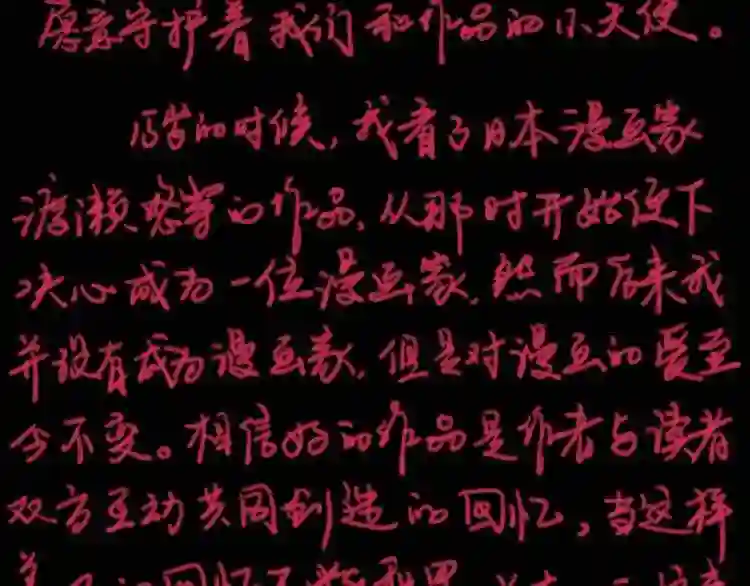 愿意守护着我们和作品的小天使。
15岁的时候,我看了日本漫画家
渡濑悠宇的作品,从那时开始便下
决心成为一位漫画家,然而后来我
并没有成为漫画家,但是对漫画的爱至
今不变。相信好的作品是作者与读者
双方互动共同创造的回忆,当这样
的回忆